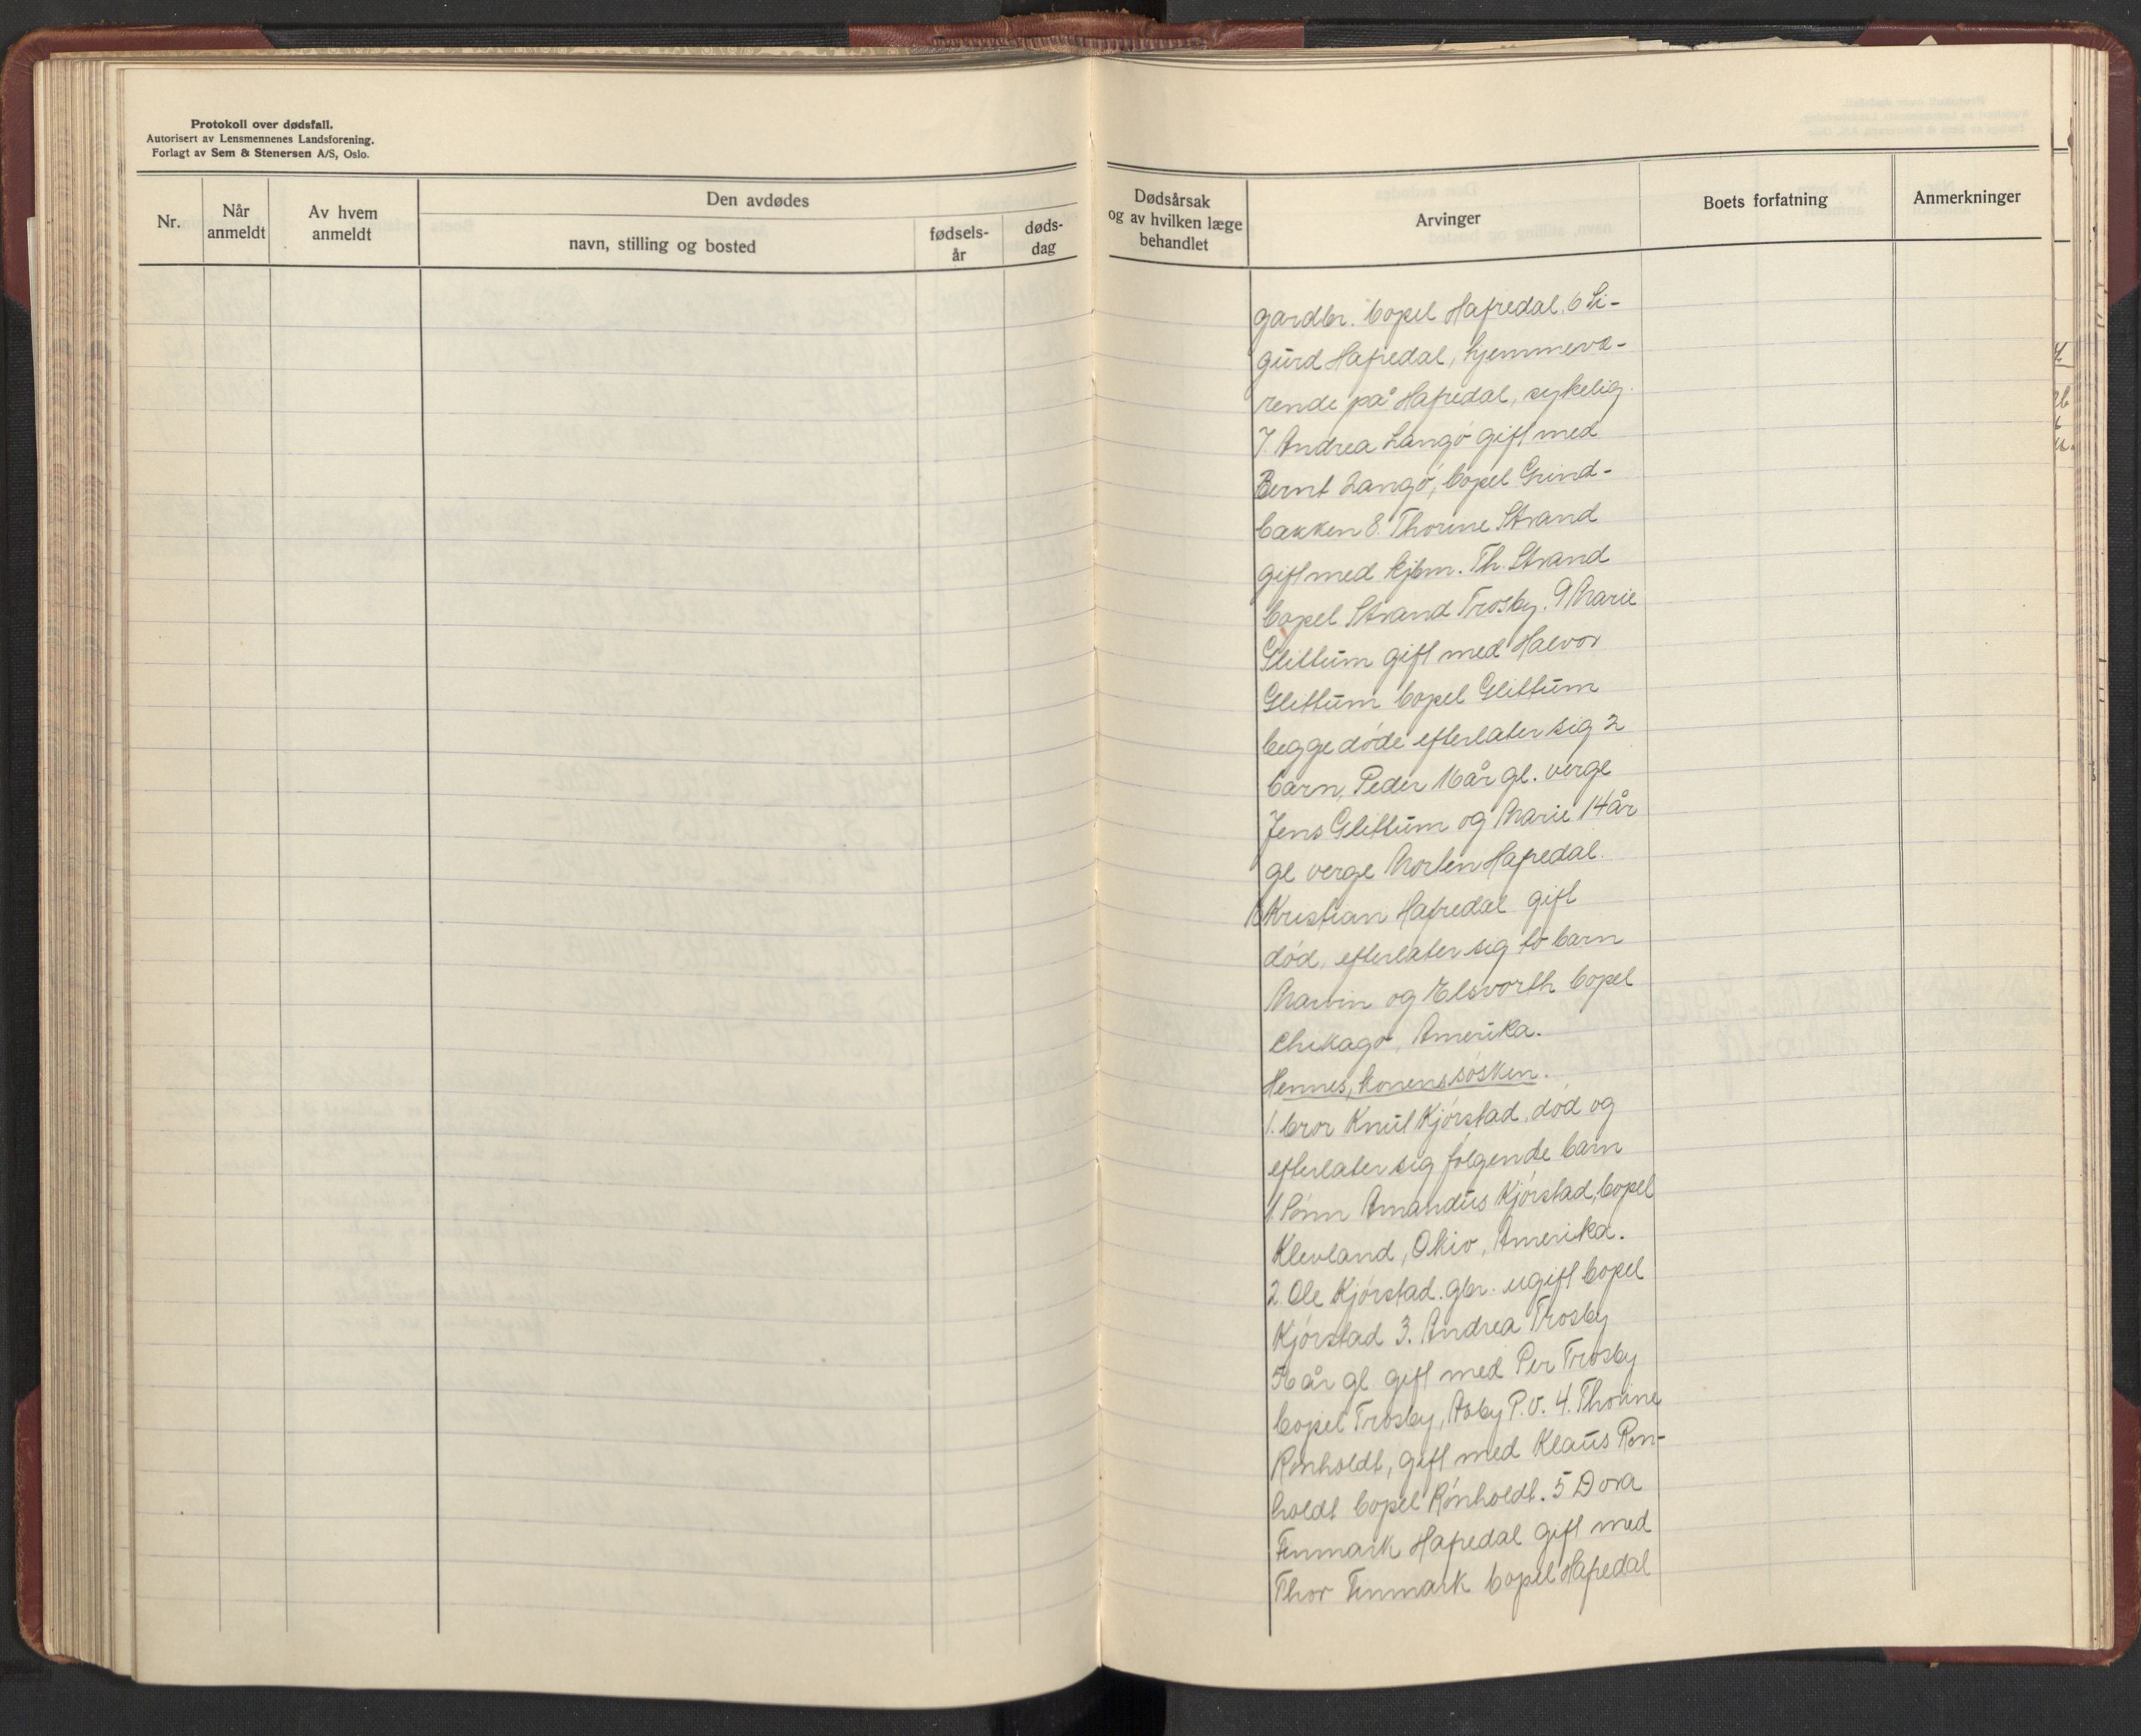 Protokoll over dødsfall.
Autorisert av Lensmennenes Landsforening.
Forlagt av Sem & Stenersen A/S, Oslo.
Nr.
Når anmeldt
Av hvem anmeldt
Den avdødes
navn, stilling og bosted
fødsels-år
døds-dag
Dødsårsak og av hvilken læge behandlet
Arvinger
Boets forfatning
Anmerkninger
gardbr. bopel Hafredal. 6 Si-
gurd Hafredal, hjemmevæ-
rende på Hafredal, sykelig.
7. Andrea Langø gift med
Bernt Langø, bopel Grind-
bakken 8. Thorine Strand
gift med kjbm. Th. Strand
bopel Strand Trosby. 9 Marie
Glittum gift med Halvor
Glittum bopel Glittum
begge døde efterlater sig 2
barn, Peder 16 år gl. verge
Jens Glittum og Marie 14 år
gl verge Morten Hafredal.
10 Kristian Hafredal gift
død, efterlater sig to barn
Marvin og Elsvorth bopel
Chikago, Amerika.
Hennes, konens søsken.
1. bror Knut Kjørstad, død og
efterlater sig følgende barn
1. Sønn Amandus Kjørstad, bopel
Klevland, Ohio, Amerika.
2. Ole Kjørstad. gbr. ugift bopel
Kjørstad 3. Andrea Trosby
56 år gl. gift med Per Trosby
bopel Trosby, Åby P.O. 4. Thorine
Rønholdt, gift med Klaus Røn-
holdt bopel Rønholdt. 5 Dora
Finmark Hafredal gift med
Thor Finmark bopel Hafredal